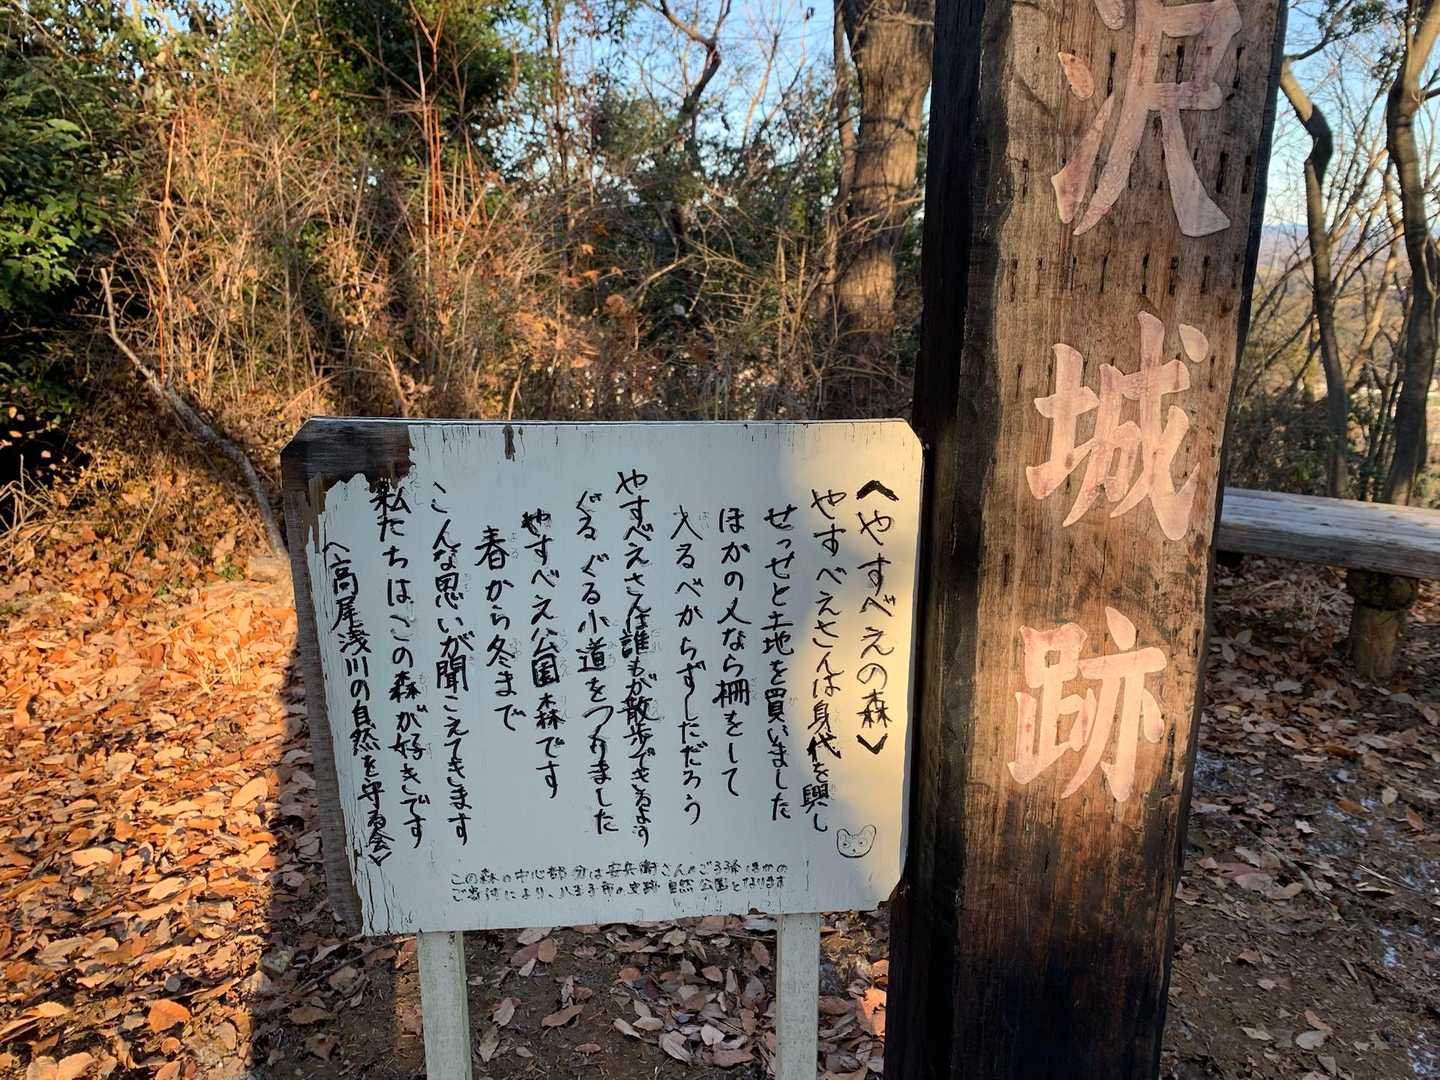 〈やすべえの森〉
やすべえさんは身代を興し
せっせと土地を買いました
ほかの人なら柵をして
入るべからずしただろう
やすべえさんは誰もが散歩できるよう
ぐるぐる小道をつくりました
やすべえ公園森です
春から冬まで
こんな思いが聞こえてきます
私たちはこの森が好きです
〈高尾浅川の自然を守る会〉
この森の中心部分は安兵衛さんのご子孫ほかの
ご寄付により、八王子市の史跡自然公園となります
沢城跡